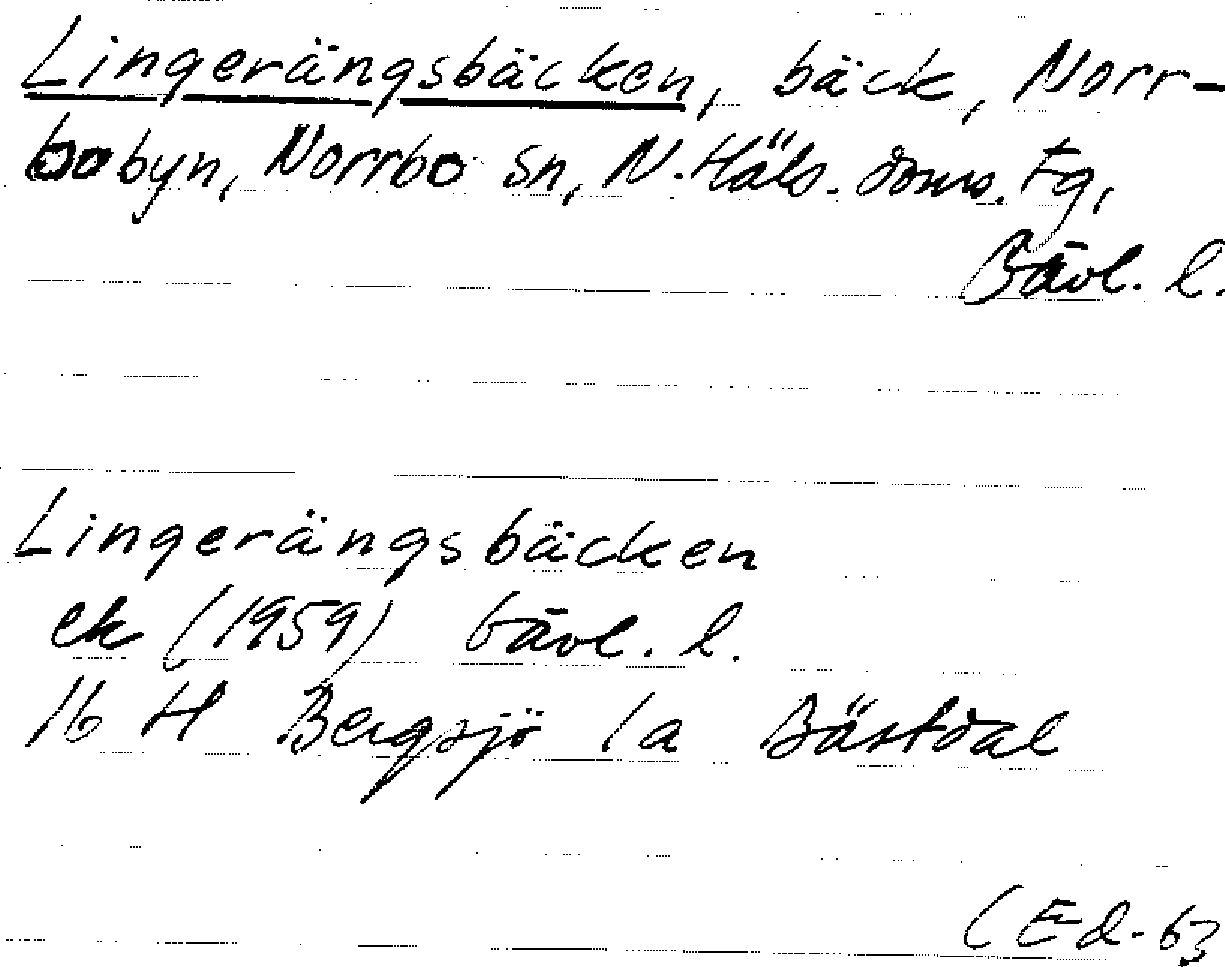 Lingerängsbäcken, bäck, Norr-
bobyn, Norrbo sn, N. Häls. doms. tg,
Gävl. l.
Lingerängsbäcken
ek (1959) Gävl. l.
16 H Bergsjö 1a Bästdal
(Ed-63